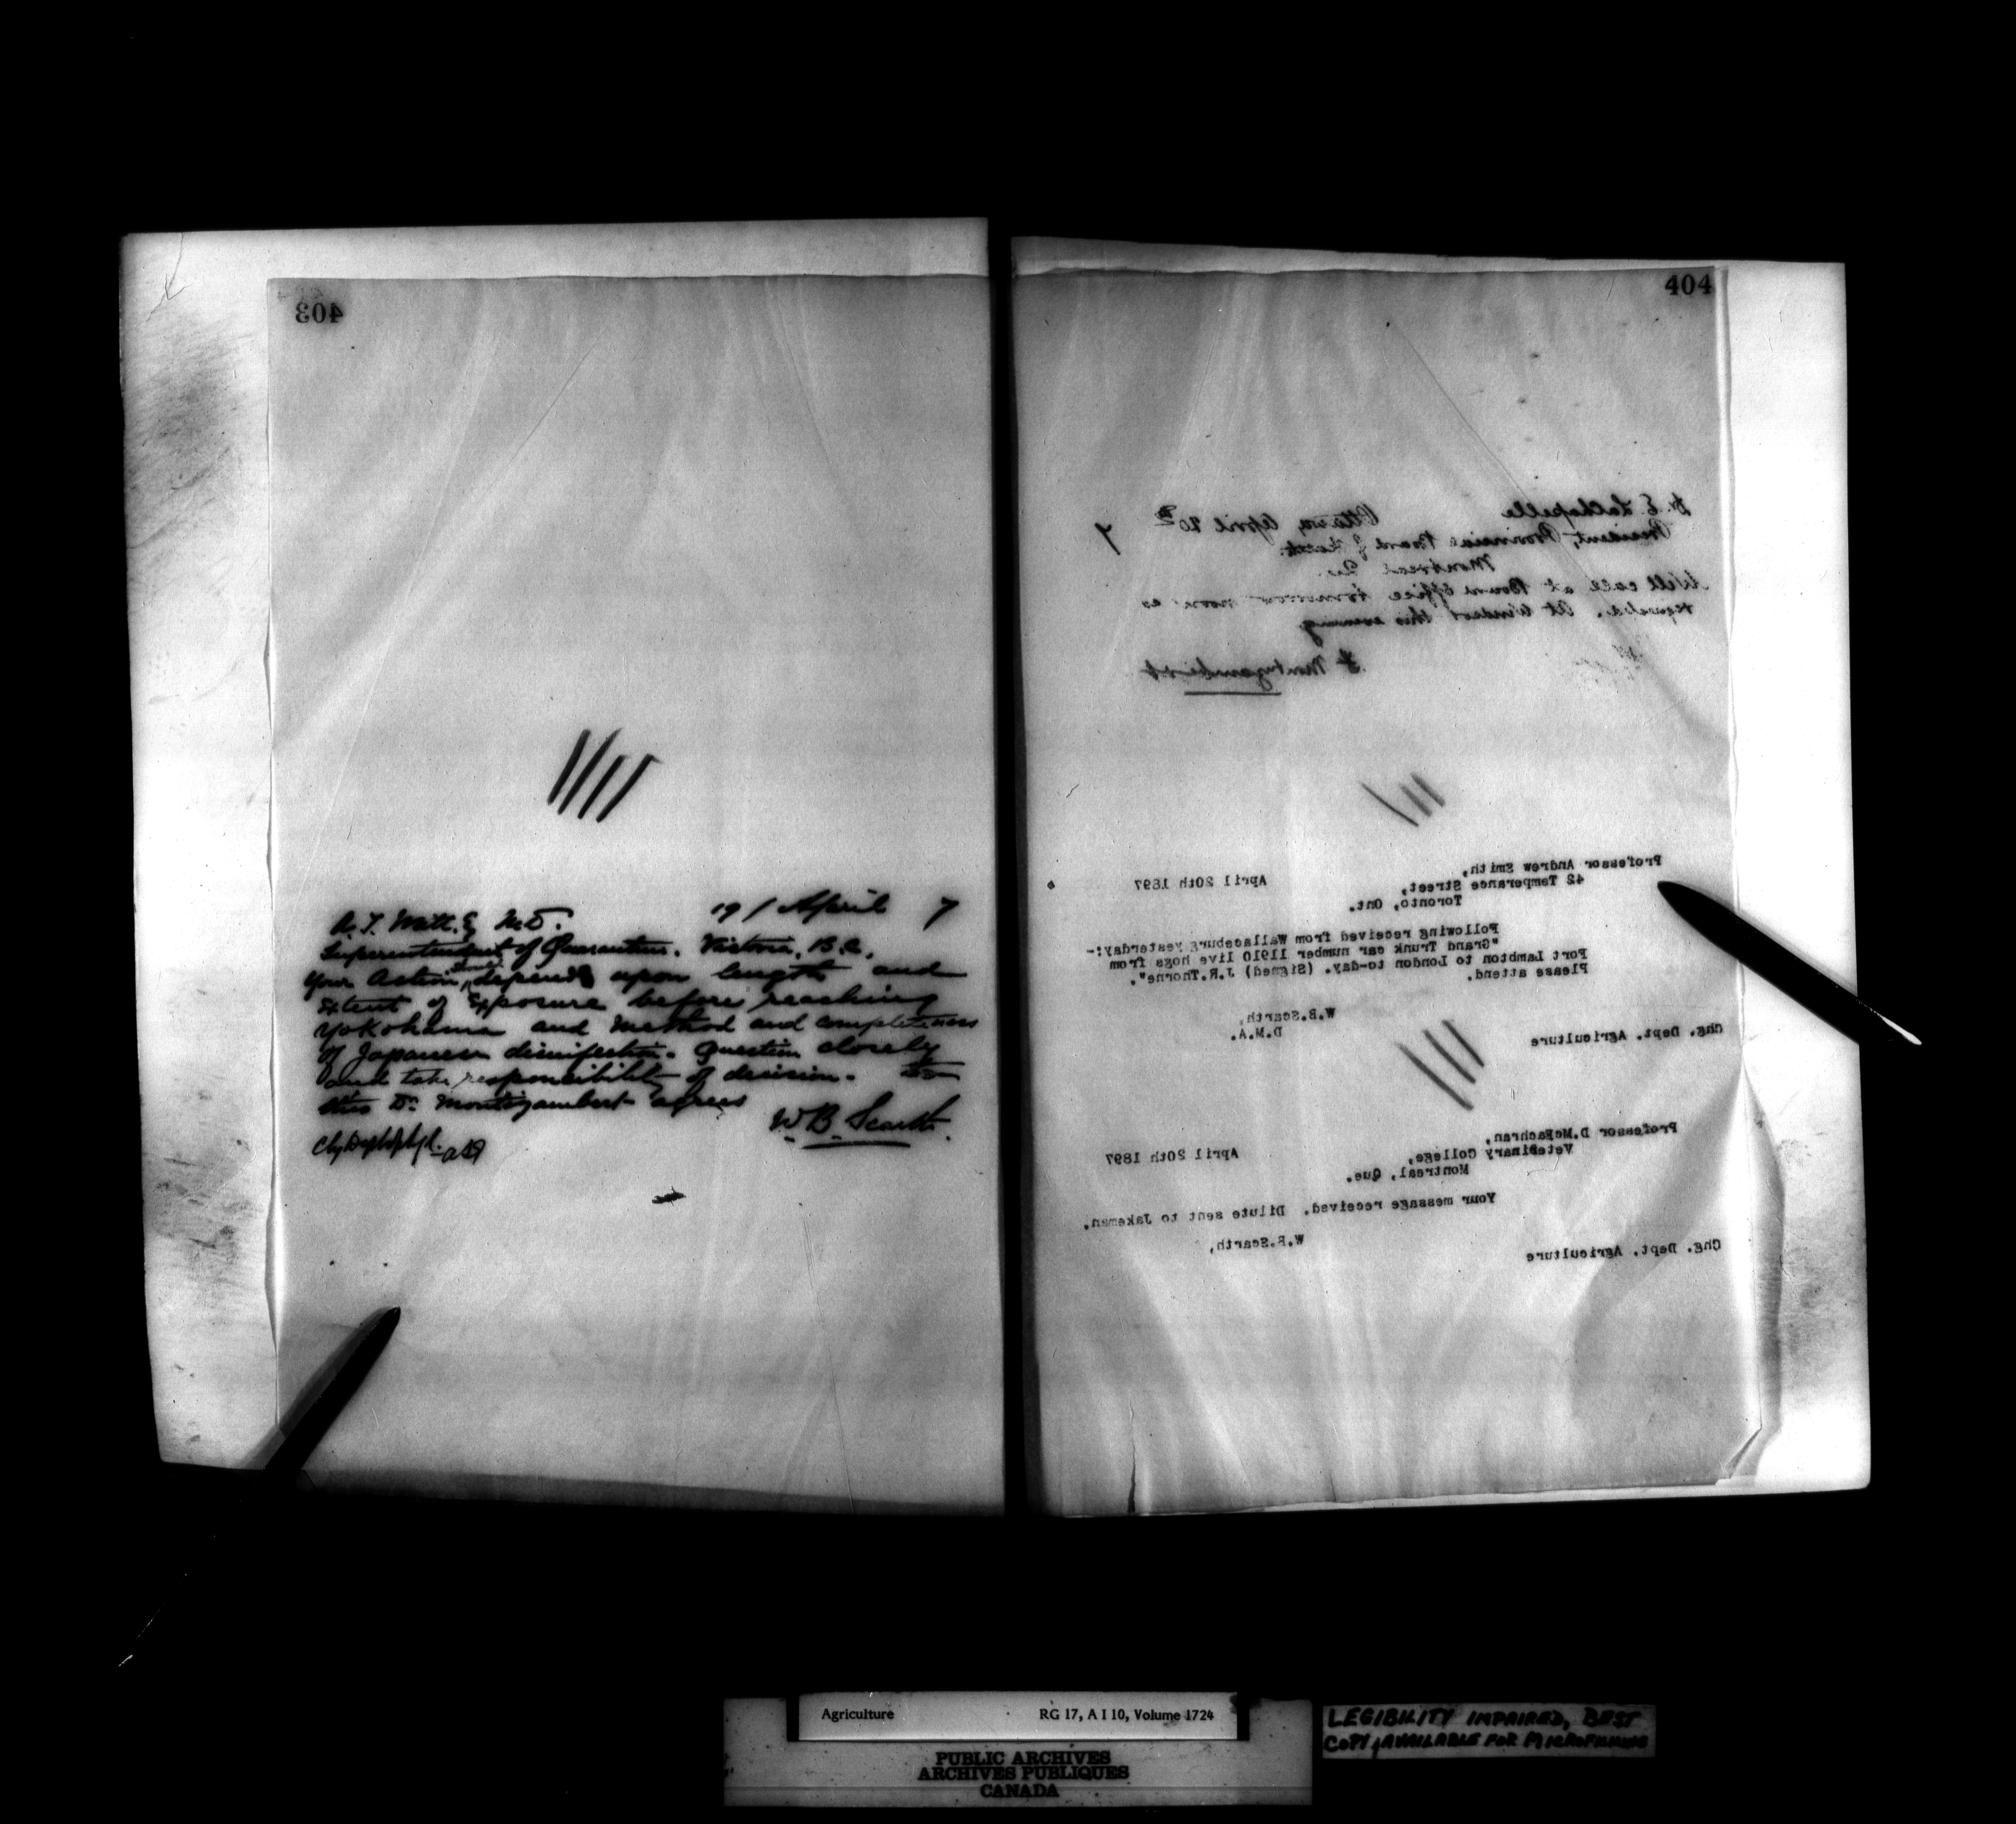 403
A. T. Watt. Esq M.D. 19 / April 7
Superintendent of Quarantine. Victoria, B.C.,
Your Action, should depend upon length and
Extent of Exposure before reaching
Yokohama and Method and completeness
Of Japanese disinfection. Question closely
and take responsibility of decision. To
this Dr. Montizambert agrees
W B Scarth.
404
Dr. E. Lachapelle Ottawa, April 20th 7
President, Provincial Board of Health.
Montreal Que.
Will call at Board office tomorrow noon as
requested. At Windsor this evening
F Montizambert
Professor Andrew Smith,
42 Temperance Street, April 20th 1897
Toronto, Ont.
Following received from Wallaceburg yesterday:-
"Grand Trunk car number 11910 live hogs from
Port Lambton to London to-day. (Signed) J.R.Thorne".
Please attend.
W.B.Scarth,
D.M.A.
Chg. Dept. Agriculture
Professor D.McEachran,
Vetebinary College, April 20th 1897
Montreal, Que.
Your message received. Dilute sent to Jakeman.
W.B.Scarth,
Chg. Dept. Agriculture
Agriculture RG 17, A I 10, Volume 1724
PUBLIC ARCHIVES
ARCHIVES PUBLIQUES
CANADA
LEGIBILITY IMPAIRED, BEST
COPY AVAILABLE FOR MICROFILMING